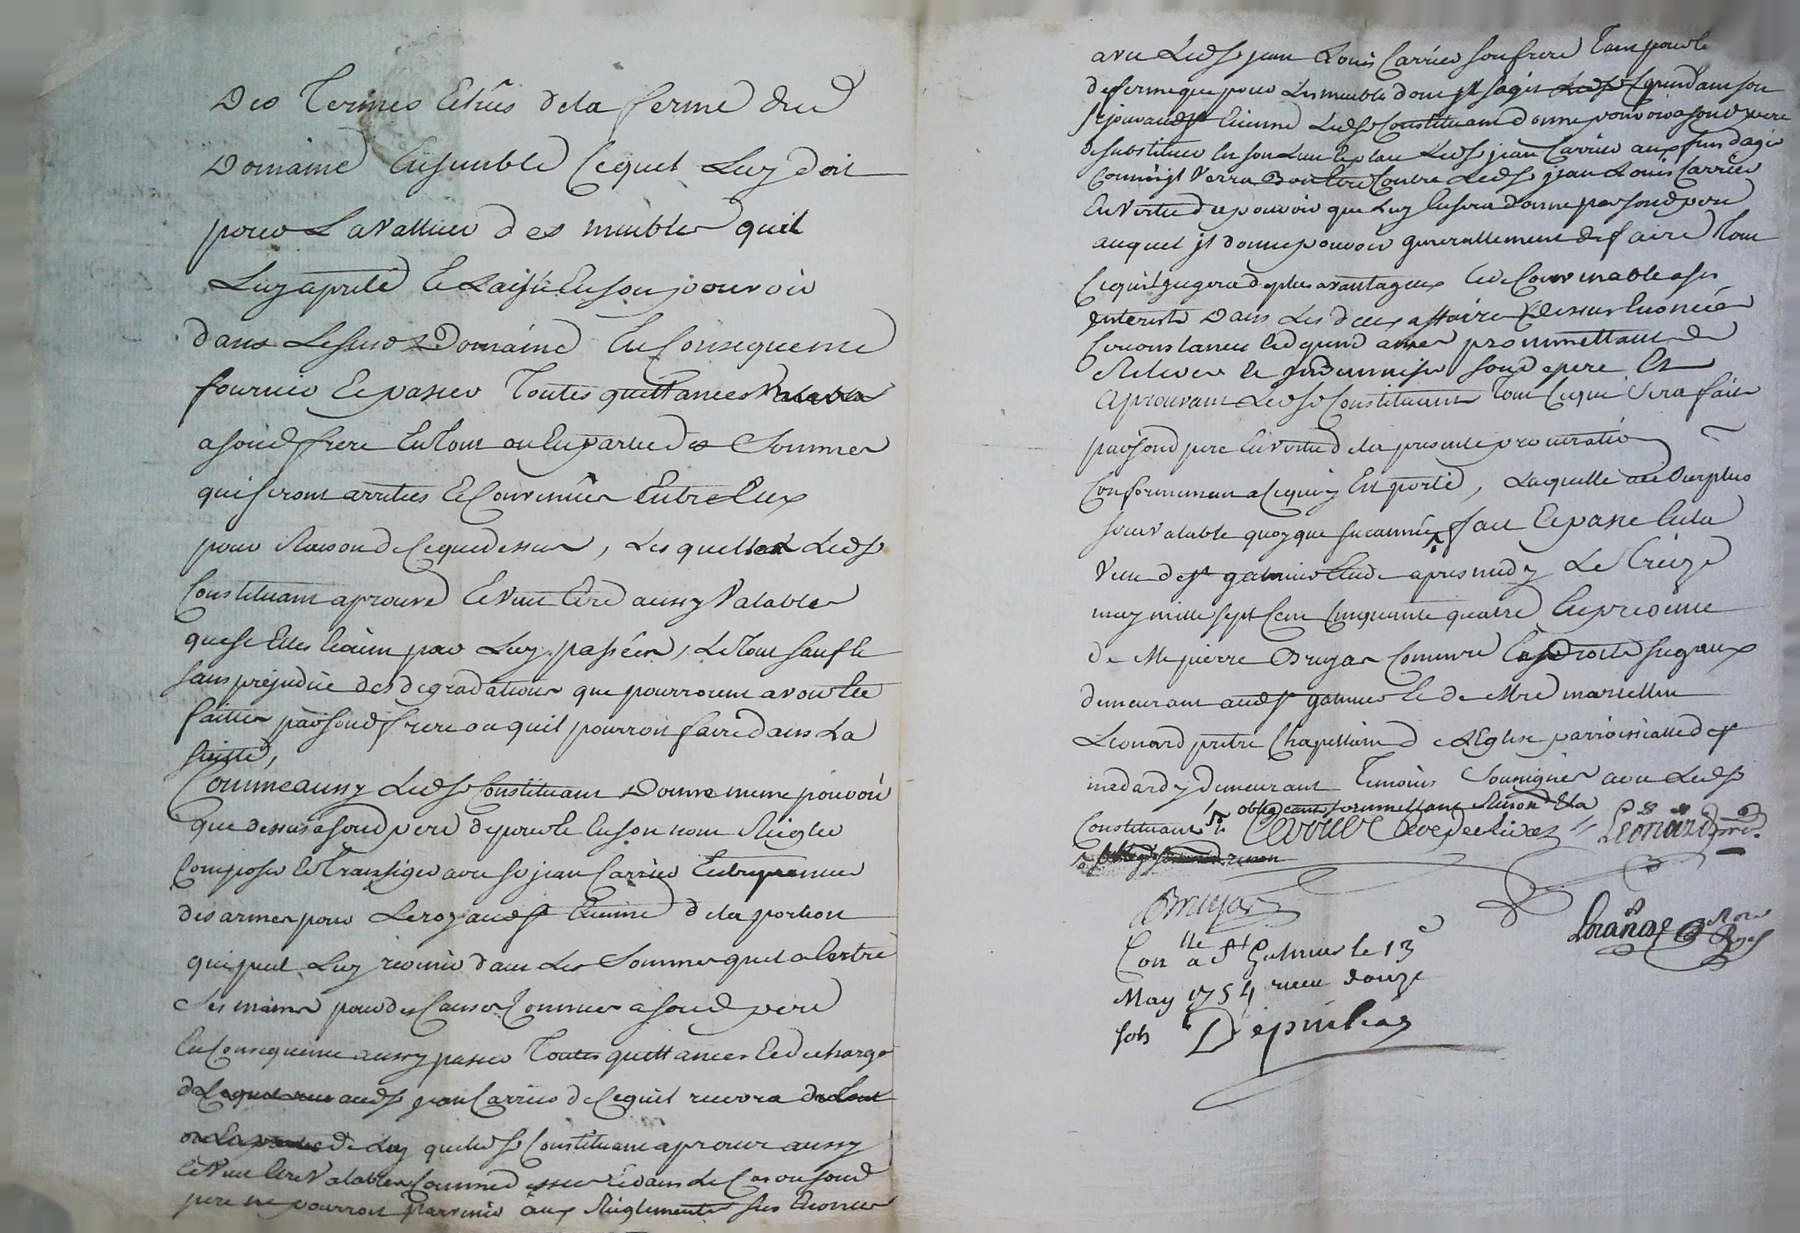 Des Termes Echus dela ferme dud
Domaine Ensemble Cequil Luy doit
pour La valleur des meubles quil
Luy apreté Et Laissé En son pouvoir
dans Lesusd Domaine En Consequence
fournir Et passer Toutes quittances valables
a soud frere En Tout ou En partie des Sommes
qui seront arretées Et Convenües Entre Eux
pour Raison de Cequedessus, Les quelles Leds
Constituant aprouve Et veut Etre aussy valables
que sy Elles Etoient par Luy passées, Le Tout sauf Et
sans prejudice des degradations que pourroient avoir Eté
faittes par soud frere ou quil pourroit faire dans La
suitte,
Comme aussy Leds Constituant Donne meme pouvoir
que dessus a soud pere de pour Et En son nom Regler
Composer Et Transiger avec sr jean Carrier Entrepreneur
des armes pour Le roy aud st Etienne de la portion
qui peut Luy revenir dans Les Sommes quil a Entre
Ses mains pour des Causes Communes a soud pere
En Consequence aussy passer Toutes quittances Et decharge
aud sr jean Carrier de Cequil recevra
de Luy que leds Constituant aprouve aussy
Et veut Etre valables Comme dessus Et dans Le Cas ou soud
pere ne pourroit parvenir aux Reglements sus Enoncés
avec Leds jean Louis Carrier son frere Tant pour le
de ferme que pour Les meubles dont jl sagit
sejour aud st Etienne Leds Constituant donne pouvoir a soud pere
de substituer En son Lieu Et place Leds jean Carrier aux fins dagir
Comme jl verra Bon Etre Contre Leds jean Louis Carrier
En vertu du pouvoir que Luy En sera donné par soud pere
auquel jl donne pouvoir generallement de faire Tout
Cequil jugera de plus avantageux Et de Convenable a ses
jnterests Dans Les deux affaires Cydessus Enoncées
Circonstances Et dependances promettant de
Relever Et jndemniser soud pere Et
aprouvant Leds Constituant Tout Cequi sera fait
par soud pere En vertu de la presente procuration
Conformement a Cequi y Est porté, Laquelle au Surplus
sera valable quoyque surannée, fait Et passé En la
ville de st galmier Etude apres midy Le Treize
may mille sept Cent Cinquante quatre En presence
de Me pierre Bruyas Comm̃re Ez droits segneux
demeurant aud st galmier Et de Mre marcellin
Leonard pretre Chapellain de LEglise parroissialle de st
medard y demeurant Temoins Soussignés avec Leds
Constituant
Leonard ptre
Bruyas
Lorange
Con lle a St Galmier le 13e
May 1754 receu douze
sols Depinhac